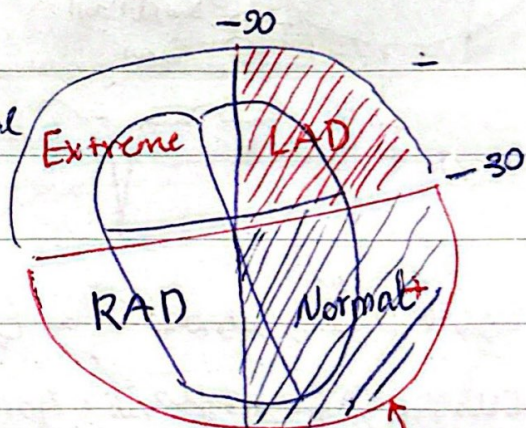 -90
-
Extreme LAD
-30
RAD Normal +